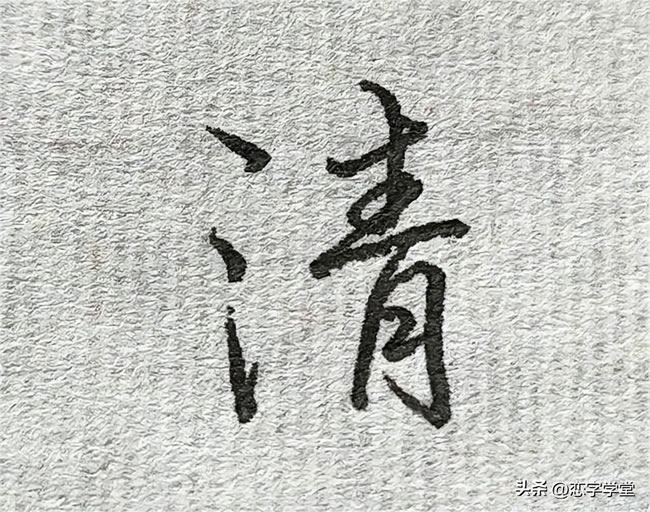 清
头条 @恋字学堂